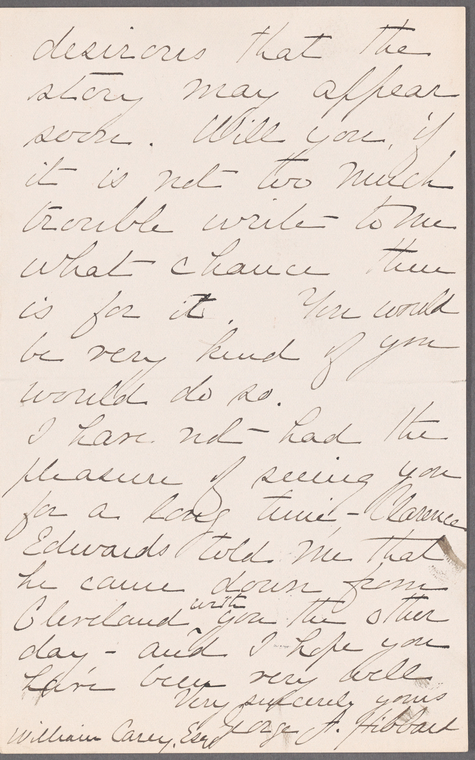 desirous that the
story may appear
soon. Will you, if
it is not too much
trouble write to me
what chance there
is for it. You would
be very kind if you
would do so.
I have not had the
pleasure of seeing you
for a long time, - Clarence
Edwards told me that
he came down from
Cleveland with you the other
day - and I hope you
have been very well
Very sincerely yours
George A. Hibbard
William Carey, Esq.